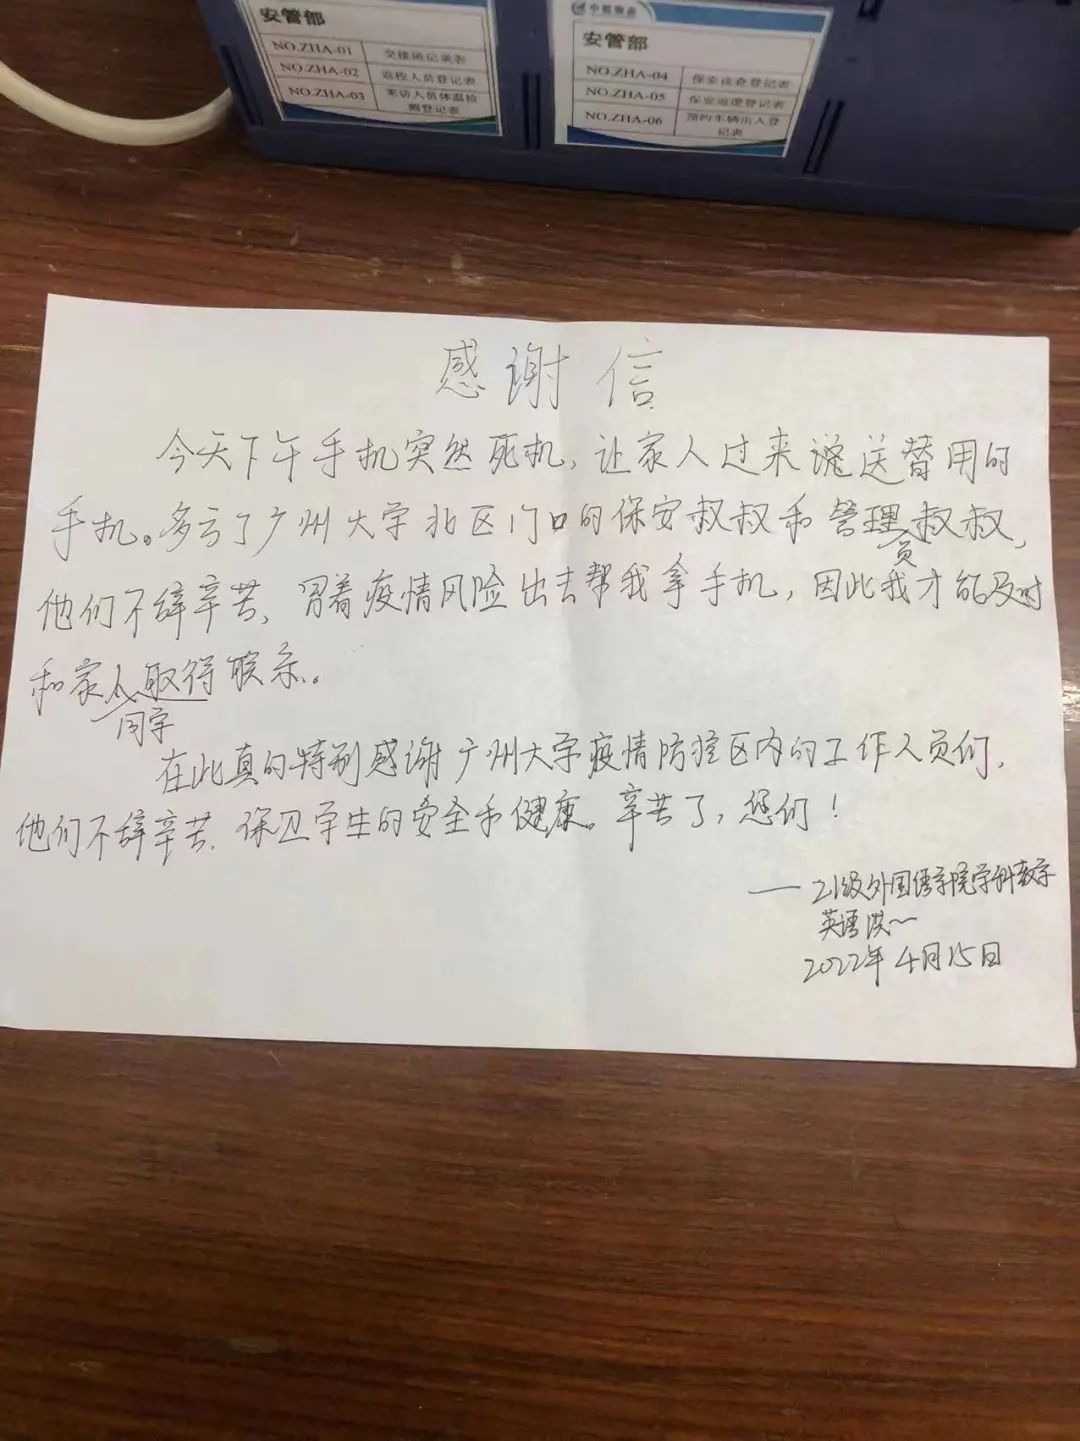 安管部
NO.ZHA-01 交接班记录表
NO.ZHA-02 返校人员登记表
NO.ZHA-03 来访人员体温检
测登记表
安管部
NO.ZHA-04 保安巡查登记表
NO.ZHA-05 保安巡逻登记表
NO.ZHA-06 预约车辆出入登
记表
感谢信
今天下午手机突然死机,让家人过来送替用的
手机。多亏了广州大学北区门口的保安叔叔和管理叔叔,
员
他们不辞辛苦、冒着疫情风险出去帮我拿手机,因此我才能及时
和家人取得联系。
同学
在此真的特别感谢广州大学疫情防控区内的工作人员们,
他们不辞辛苦、保卫学生的安全和健康。辛苦了,您们!
— 21级外国语学院学科教学
英语 洪~
2022年4月15日